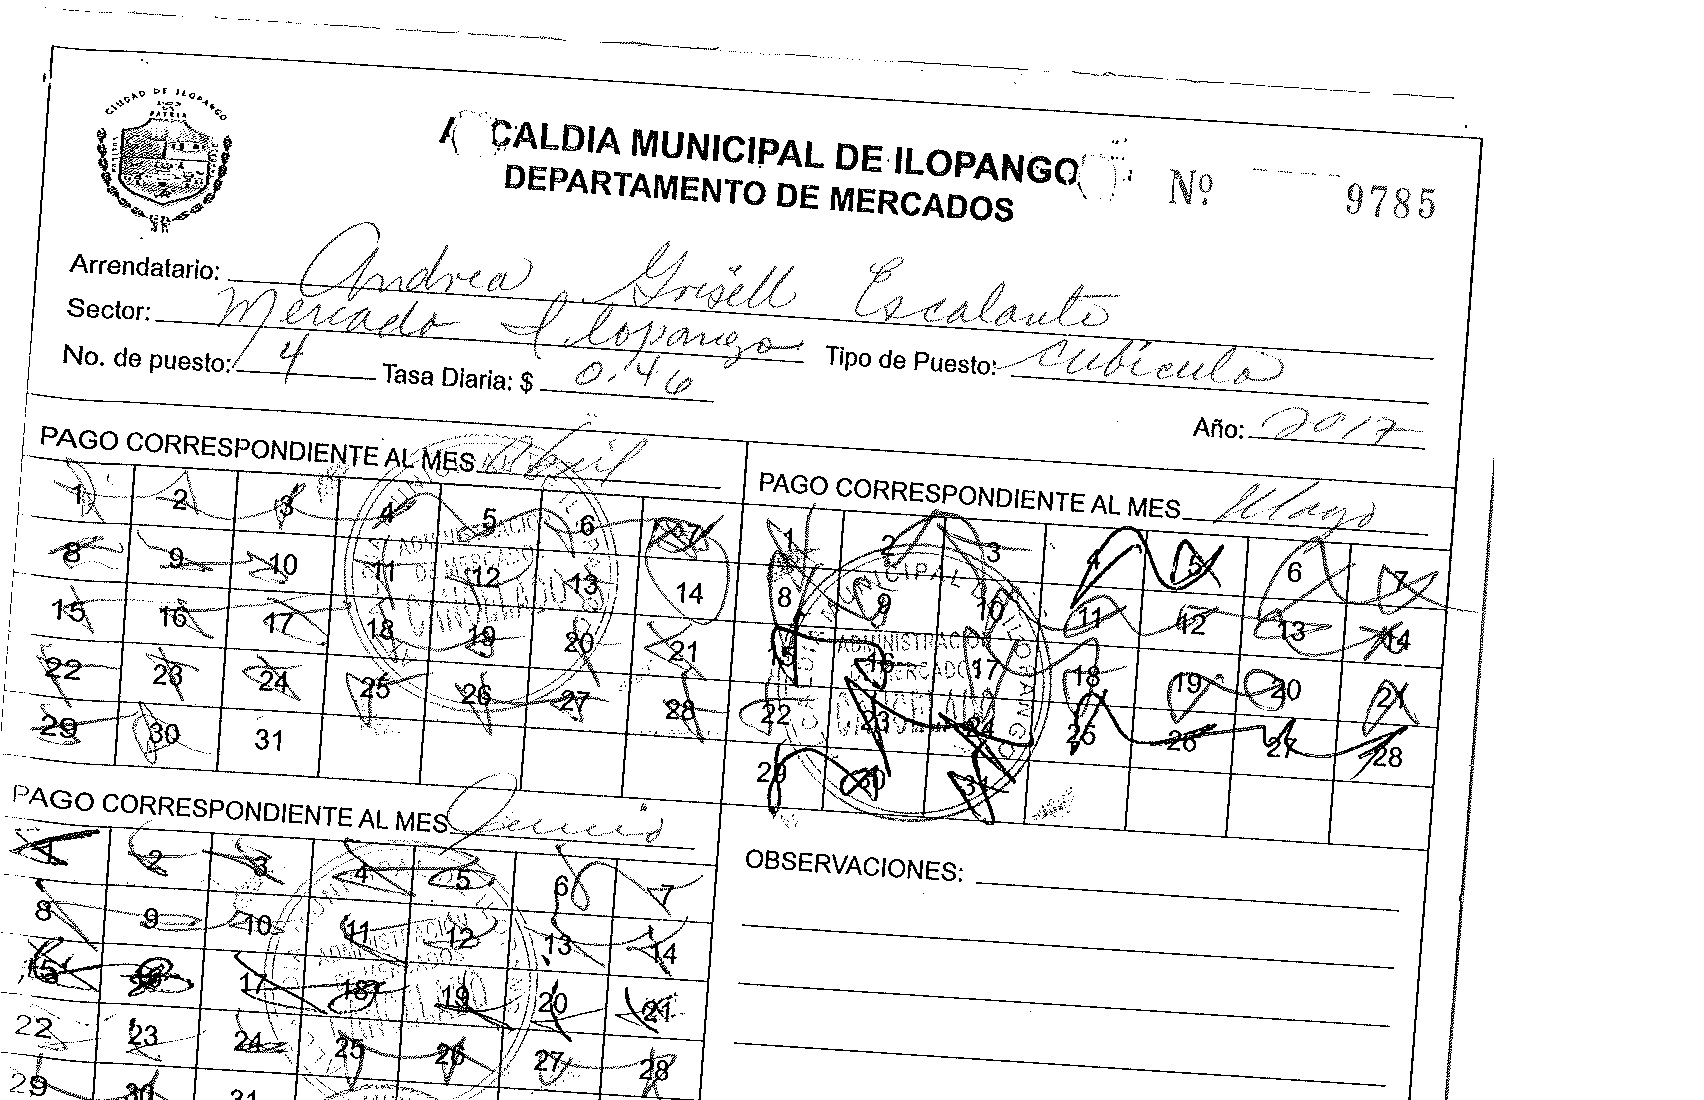 CIUDAD DE ILOPANGO
PATRIA
ALCALDIA MUNICIPAL DE ILOPANGO
Nº 9785
DEPARTAMENTO DE MERCADOS
Arrendatario: Andrea Grisell Escalante
Sector: Mercado Ilopango
Tipo de Puesto: cubiculo
No. de puesto: 4 Tasa Diaria: $ 0.46
Año: 2017
PAGO CORRESPONDIENTE AL MES Abril
1 2 3 4 5 6 7
8 9 10 11 12 13 14
15 16 17 18 19 20 21
22 23 24 25 26 27 28
29 30 31
ADMINISTRACION
DE MERCADOS
CANCELADO
PAGO CORRESPONDIENTE AL MES Mayo
1 2 3 4 5 6 7
8 9 10 11 12 13 14
15 16 17 18 19 20 21
22 23 24 25 26 27 28
29 30 31
MUNICIPAL DE ILOPANGO
ADMINISTRACION
MERCADOS
CANCELADO
PAGO CORRESPONDIENTE AL MES Junio
1 2 3 4 5 6 7
8 9 10 11 12 13 14
15 16 17 18 19 20 21
22 23 24 25 26 27 28
29 30 31
ADMINISTRACION
OBSERVACIONES: